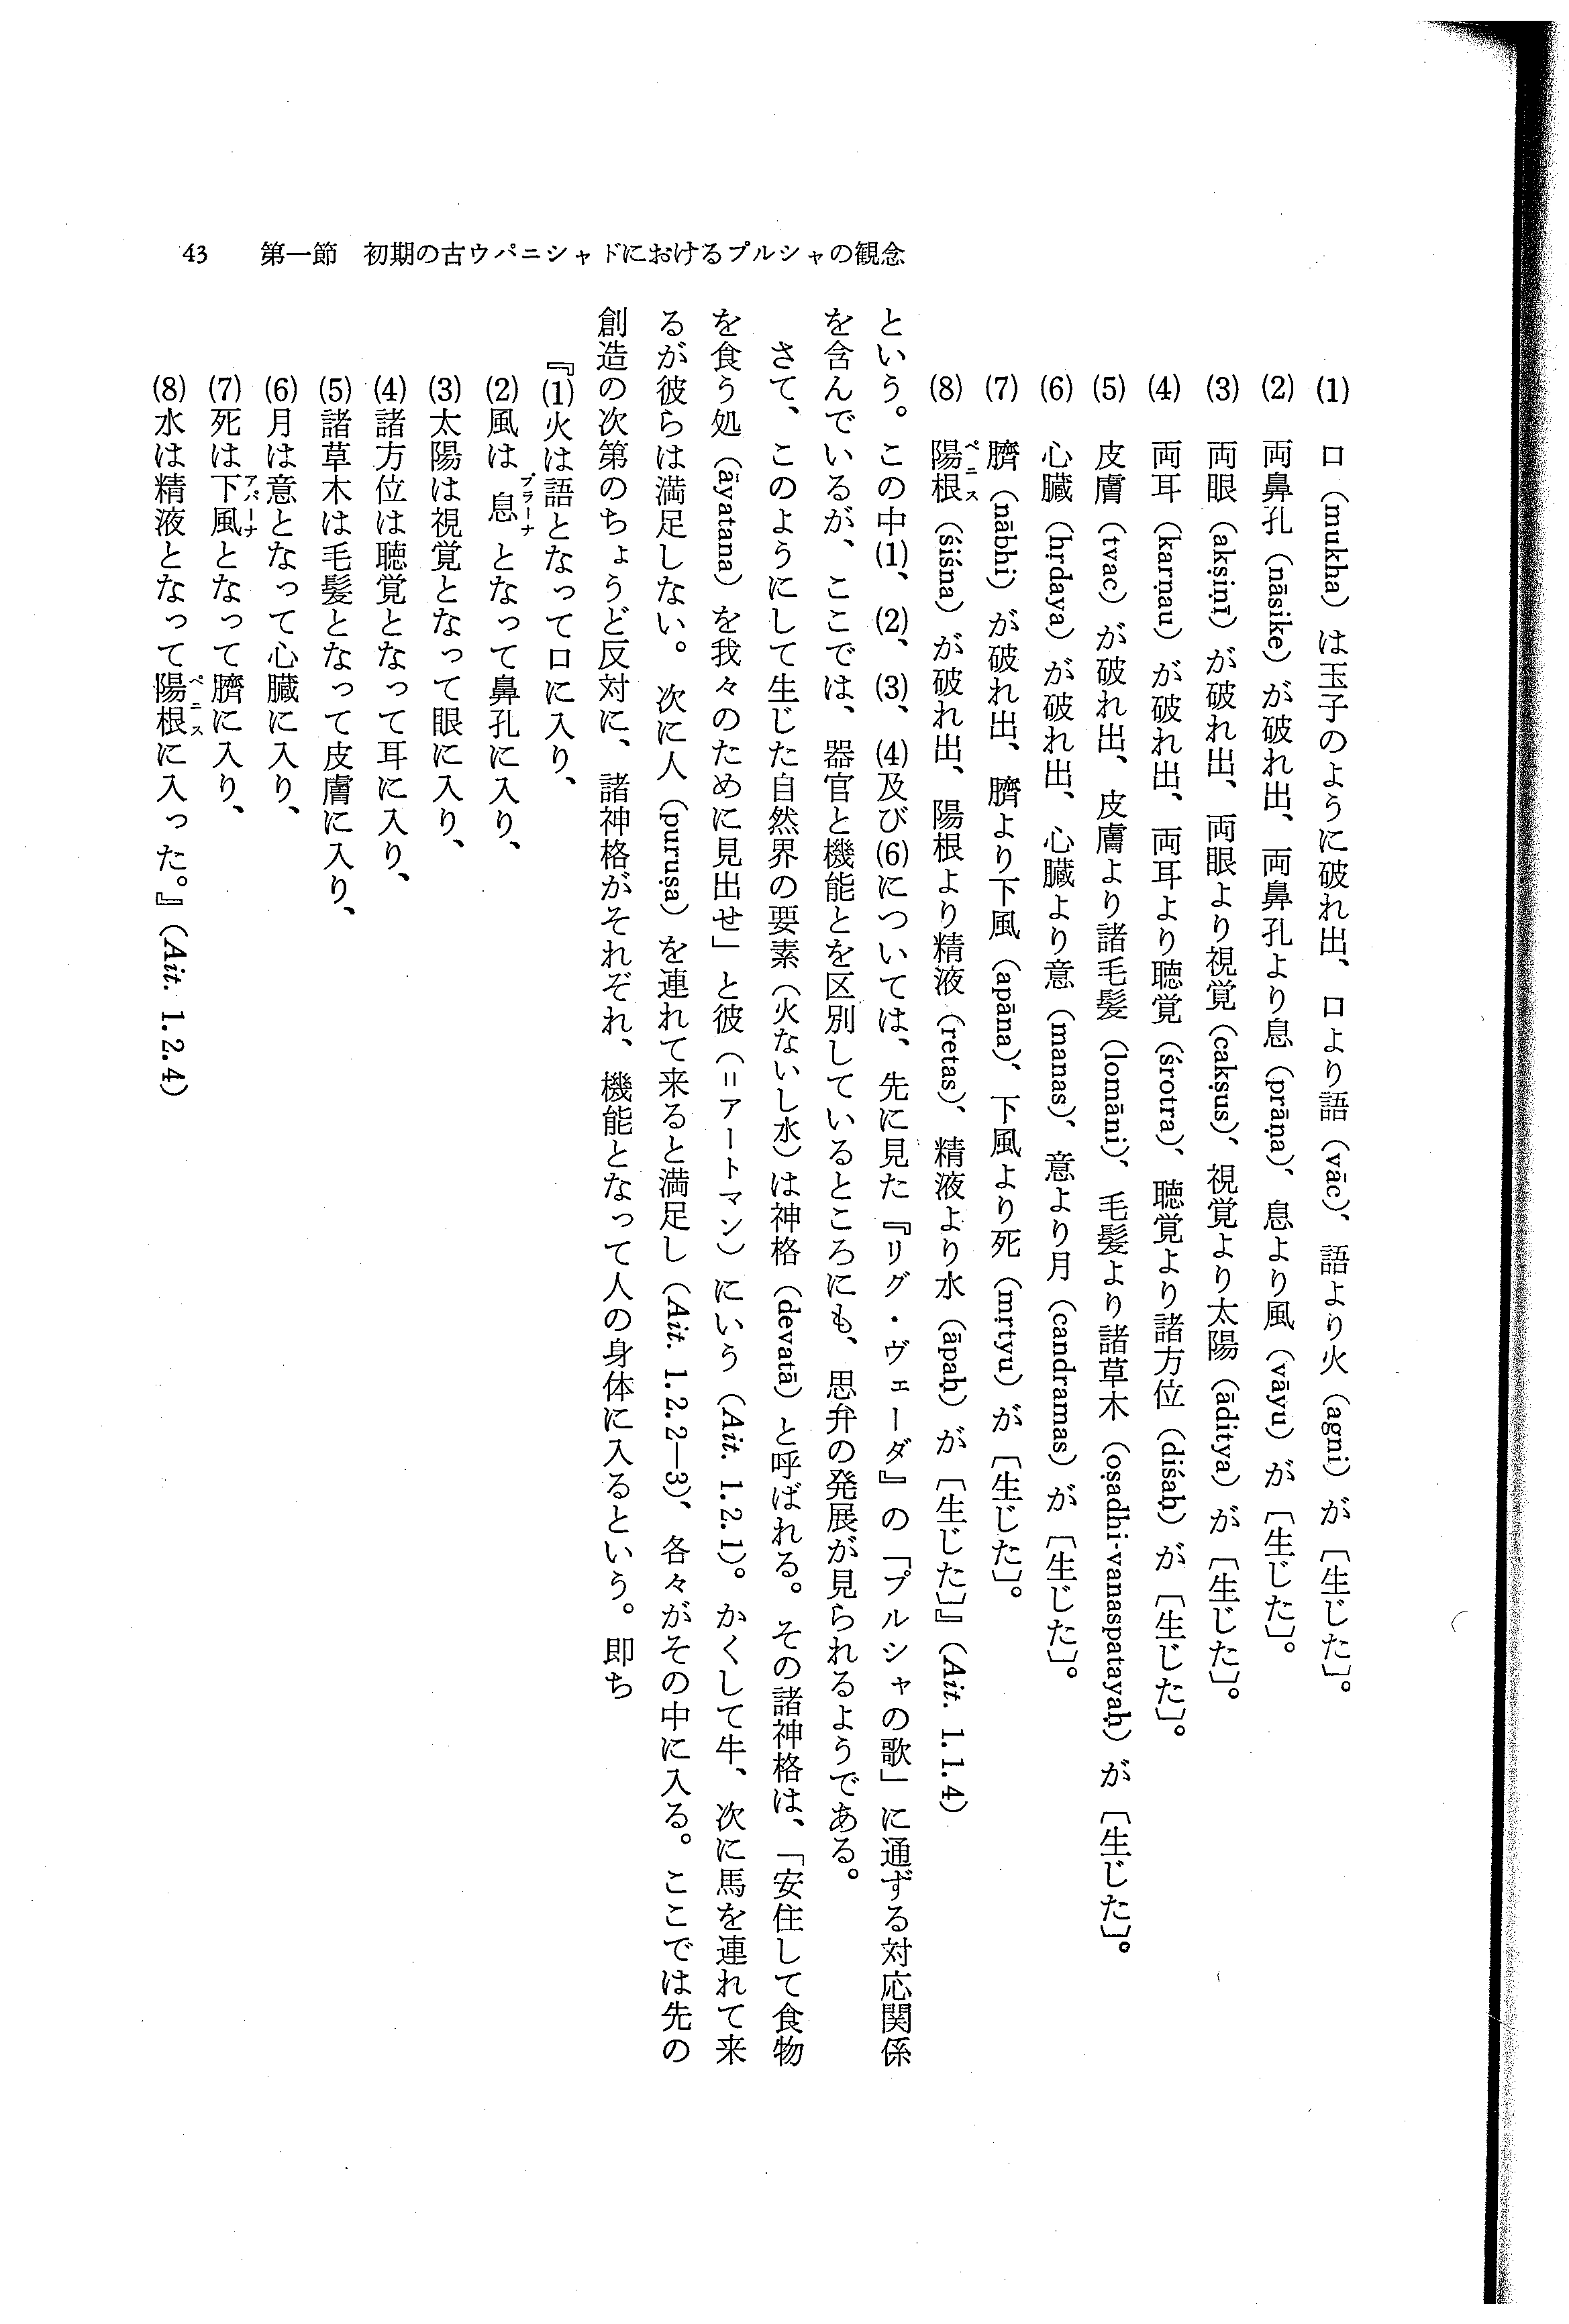 43　第一節　初期の古ウパニシャドにおけるプルシャの観念
(1)　口（mukha）は玉子のように破れ出、口より語（vāc）、語より火（agni）が〔生じた〕。
(2)　両鼻孔（nāsike）が破れ出、両鼻孔より息（prāṇa）、息より風（vāyu）が〔生じた〕。
(3)　両眼（akṣiṇī）が破れ出、両眼より視覚（cakṣus）、視覚より太陽（āditya）が〔生じた〕。
(4)　両耳（karṇau）が破れ出、両耳より聴覚（śrotra）、聴覚より諸方位（diśaḥ）が〔生じた〕。
(5)　皮膚（tvac）が破れ出、皮膚より諸毛髪（lomāni）、毛髪より諸草木（oṣadhi-vanaspatayaḥ）が〔生じた〕。
(6)　心臓（hṛdaya）が破れ出、心臓より意（manas）、意より月（candramas）が〔生じた〕。
(7)　臍（nābhi）が破れ出、臍より下風（apāna）、下風より死（mṛtyu）が〔生じた〕。
(8)　陽根（ペニス）（śiśna）が破れ出、陽根より精液（retas）、精液より水（āpaḥ）が〔生じた〕』（Ait. 1.1.4）
という。この中(1)、(2)、(3)、(4)及び(6)については、先に見た『リグ・ヴェーダ』の「プルシャの歌」に通ずる対応関係
を含んでいるが、ここでは、器官と機能とを区別しているところにも、思弁の発展が見られるようである。
さて、このようにして生じた自然界の要素（火ないし水）は神格（devatā）と呼ばれる。その諸神格は、「安住して食物
を食う処（āyatana）を我々のために見出せ」と彼（＝アートマン）にいう（Ait. 1.2.1）。かくして牛、次に馬を連れて来
るが彼らは満足しない。次に人（puruṣa）を連れて来ると満足し（Ait. 1.2.2―3）、各々がその中に入る。ここでは先の
創造の次第のちょうど反対に、諸神格がそれぞれ、機能となって人の身体に入るという。即ち
『(1)火は語となって口に入り、
(2)風は息（プラーナ）となって鼻孔に入り、
(3)太陽は視覚となって眼に入り、
(4)諸方位は聴覚となって耳に入り、
(5)諸草木は毛髪となって皮膚に入り、
(6)月は意となって心臓に入り、
(7)死は下風（アパーナ）となって臍に入り、
(8)水は精液となって陽根（ペニス）に入った。』（Ait. 1.2.4）